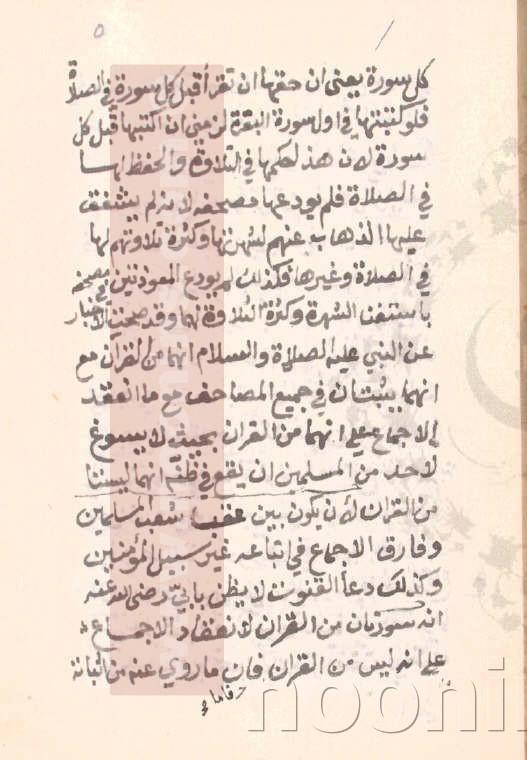 ٥
كل سورة يعني ان حقها ان تقرأ قبل كل سورة في الصلاة
فلو كتبتها في اول سورة البقرة لزمني ان اكتبها قبل كل
سورة لان هذا حكمها في التلاوة والحفظ لها
في الصلاة فلم يودعها مصحفه لانه لم يشفق
عليها الذهاب عنهم لشهرتها وكثرة تلاوتهم لها
في الصلاة وغيرها وكذلك لم يودع المعوذتين مصحفه
بالشهرة وكثرة التلاوة لهما وقد صحت الاخبار في
عن النبي عليه الصلاة والسلام انهما من القرآن مع
انهما يثبتان في جميع المصاحف مع ما انعقد
الاجماع على انهما من القران بحيث لا يسوغ
لاحد من المسلمين ان يقع في ظنه انهما ليستا
من القران لأن يكون بين شعب المسلمين
وفارق الاجماع في اتباعه غير سبيل المؤمنين
وكذلك دعأ القنوت لا يظن بابيّ رضي الله عنه
انه سورتان من القران لانعقاد الاجماع
على انه ليس من القران فان ما روي عنه من اثباته
noon